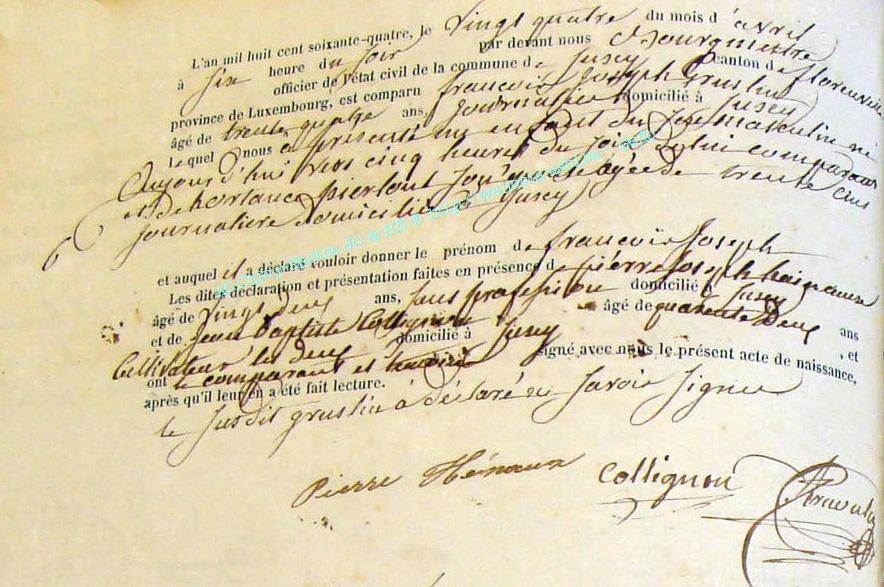 L'an mil huit cent soixante-quatre, le vingt quatre du mois d'avril
à six heure du soir par devant nous Bourgmestre
officier de l'état civil de la commune de Jusey canton de florenville
province de Luxembourg, est comparu francois Joseph gruslin
âgé de trente quatre ans journalier domicilié à Jusey
Lequel nous a présenté un enfant du sexe masculin né
aujourd'hui vers cinq heures du soir de lui comparant
et de hortance pierlont son épouse âgée de trente cinq
journaliere domicilié à Jusey
et auquel il a déclaré vouloir donner le prénom de francois Joseph
Les dites déclaration et présentation faites en présence de pierre Joseph
âgé de vingt deux ans, sans profession domicilié à Jusey
et de Jean Baptiste Collignon âgé de quarente deux ans
Cultivateur les deux domicilié à Jusey , et
ont le comparant et signé avec nous le présent acte de naissance,
après qu'il leur en a été fait lecture.
le susdit gruslin à déclaré ne savoir signer
Pierre Collignon